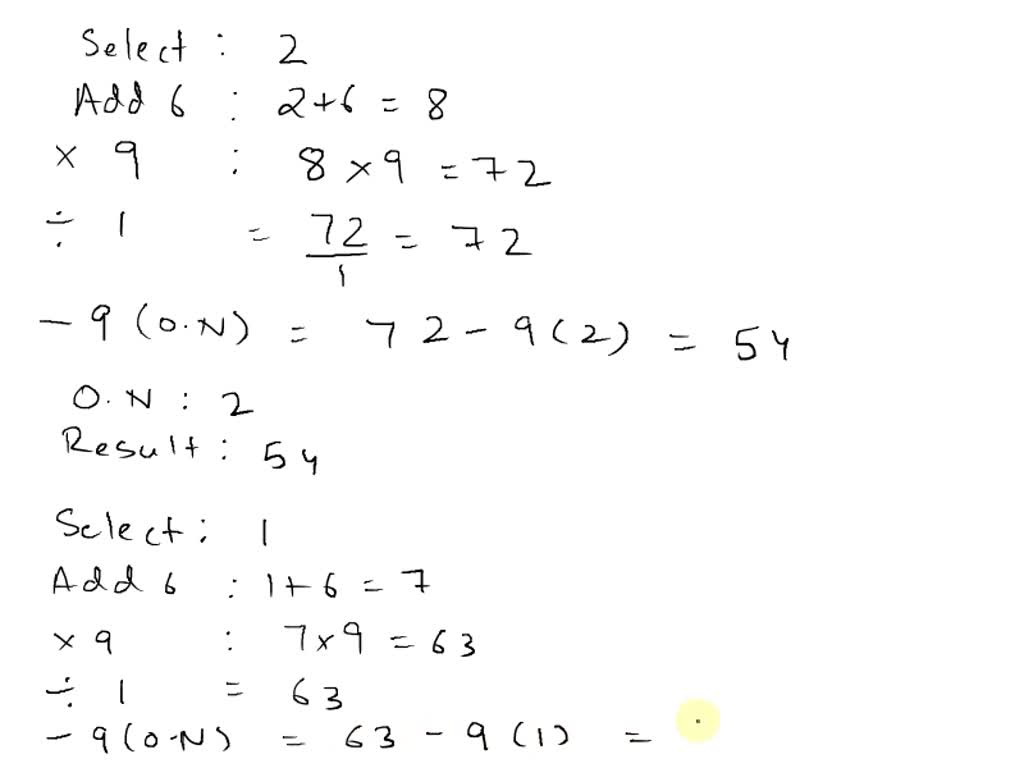 Select : 2
Add 6 : 2+6 = 8
× 9 : 8 × 9 = 72
÷ 1 = 72/1 = 72
- 9 (O.N) = 72 - 9 (2) = 54
O.N : 2
Result : 54
Select : 1
Add 6 : 1+6 = 7
× 9 : 7×9 = 63
÷ 1 = 63
- 9 (O.N) = 63 - 9 (1) =